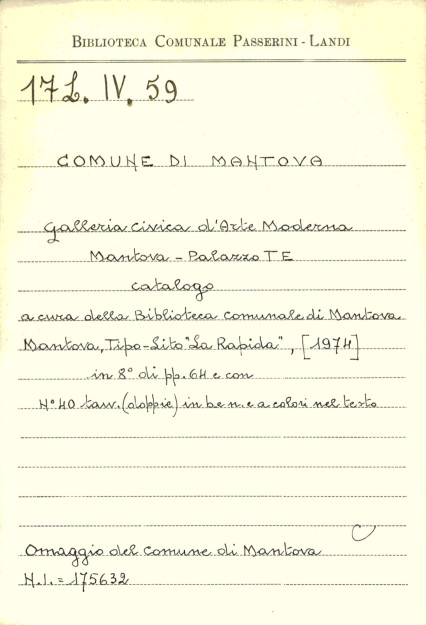 BIBLIOTECA COMUNALE PASSERINI - LANDI
17 L. IV. 59
COMUNE DI MANTOVA
Galleria civica d'Arte Moderna
Mantova - Palazzo TE
catalogo
a cura della Biblioteca comunale di Mantova
Mantova, Tipo-Lito "La Rapida", [1974]
in 8° di pp. 64 e con
N° 40 tavv. (doppie) in b e n. e a colori nel testo
Omaggio del Comune di Mantova
N.I. = 175632